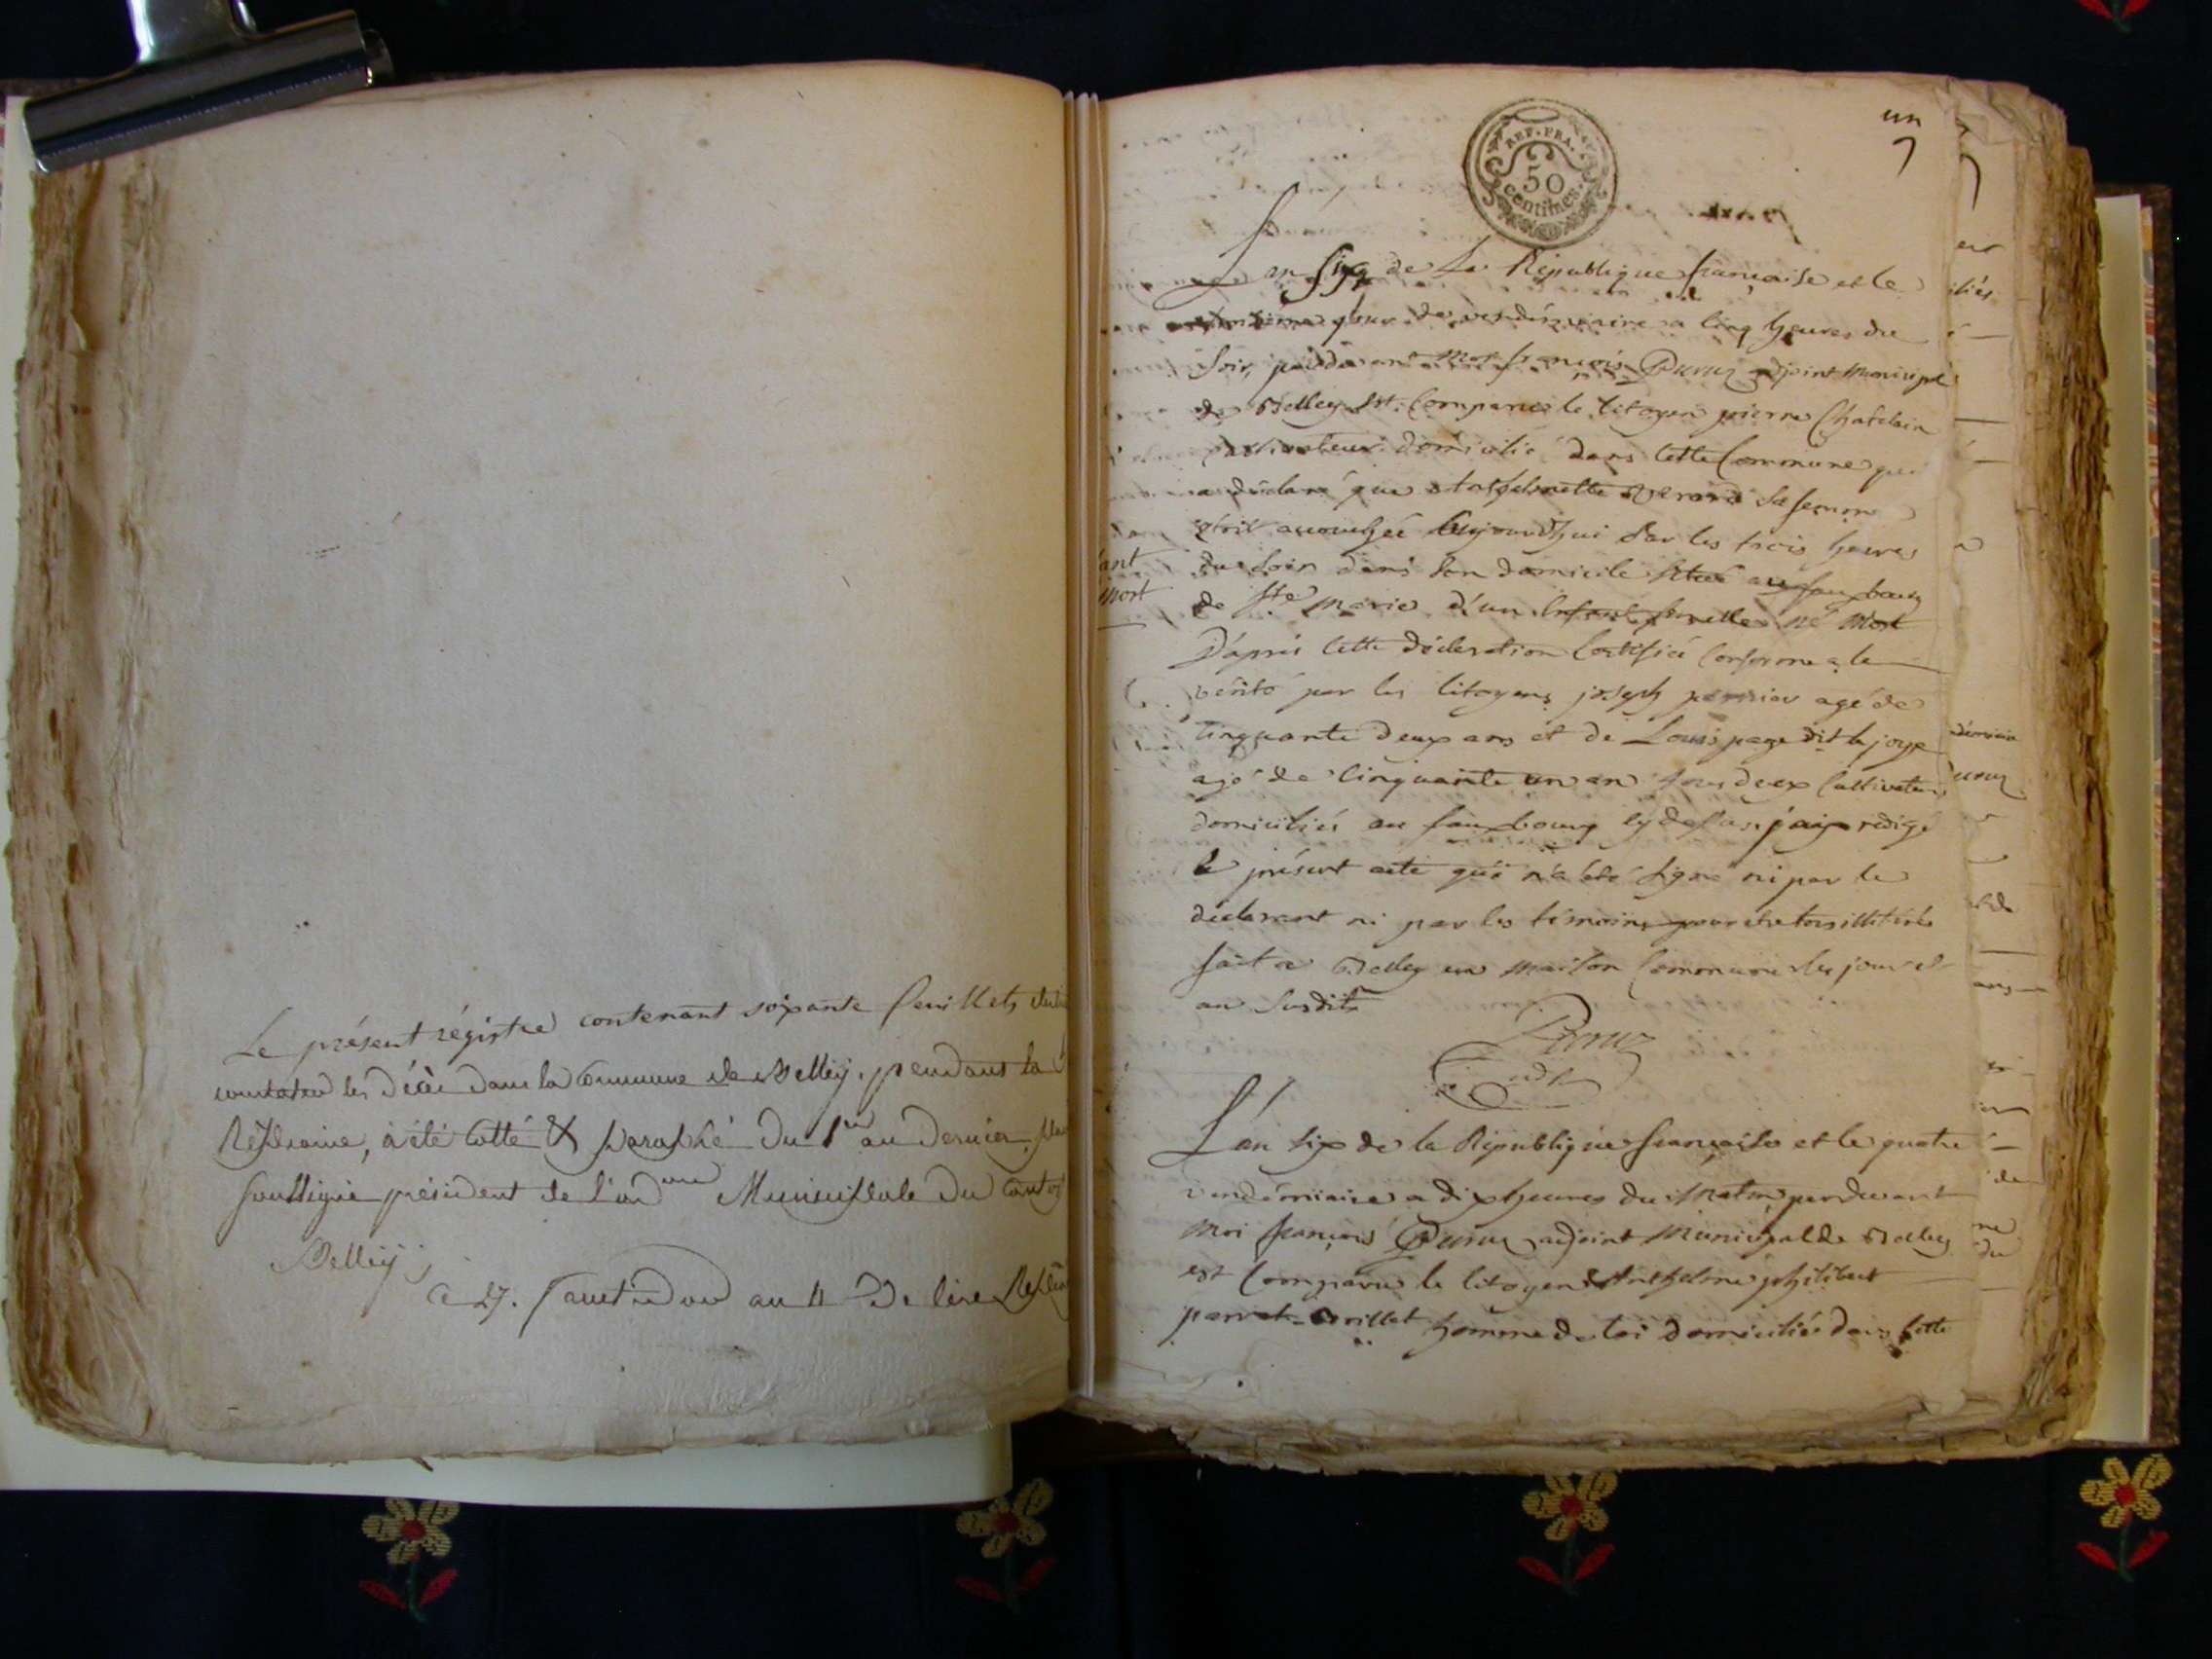 Le présent régistre contenant soixante feuillets
les décès dans la Commune de Belley, pendant la
à été cotté & paraphé du 1er au dernier
soussigné président de l'adon Municipale du canton
Belley;
Ce 27. fructidor an 5 de l'ère
un
REP. FRA.
50
centimes.
L'an six de la République française et le
jour de vendémiaire a cinq heures du
soir, pardevant Moi françois Peruz adjoint municipal
de Belley est comparu le citoyen pierre Chatelain
cultivateur domicilié dans cette Commune qui
a déclaré que Anthelmette sa femme
étoit accouchée aujourd'hui sur les trois heures
du soir dans son domicile situé au fauxbourg
de Ste marie d'un Enfant femelle né Mort
ant
mort
D'après cette déclaration certifiée conforme a la
vérité par les citoyens joseph perrier agé de
cinquante deux ans et de Louis page dit la joye
agé de cinquante un an tous deux cultivateurs
domiciliés au fauxbourg cy dessus j'ai rédigé
le présent acte qui n'a été signé ni par le
déclarant ni par les témoins pour être tous illitérés
fait a Belley en maison Commune les jour et
an susdits
Peruz
adjt
L'an six de la République française et le quatre
vendémiaire a dix heures du Matin, pardevant
Moi françois Peruz adjoint Municipal de Belley
est Comparu le citoyen Anthelme philibert
parrat-Brillat homme de loi domicilié dans cette